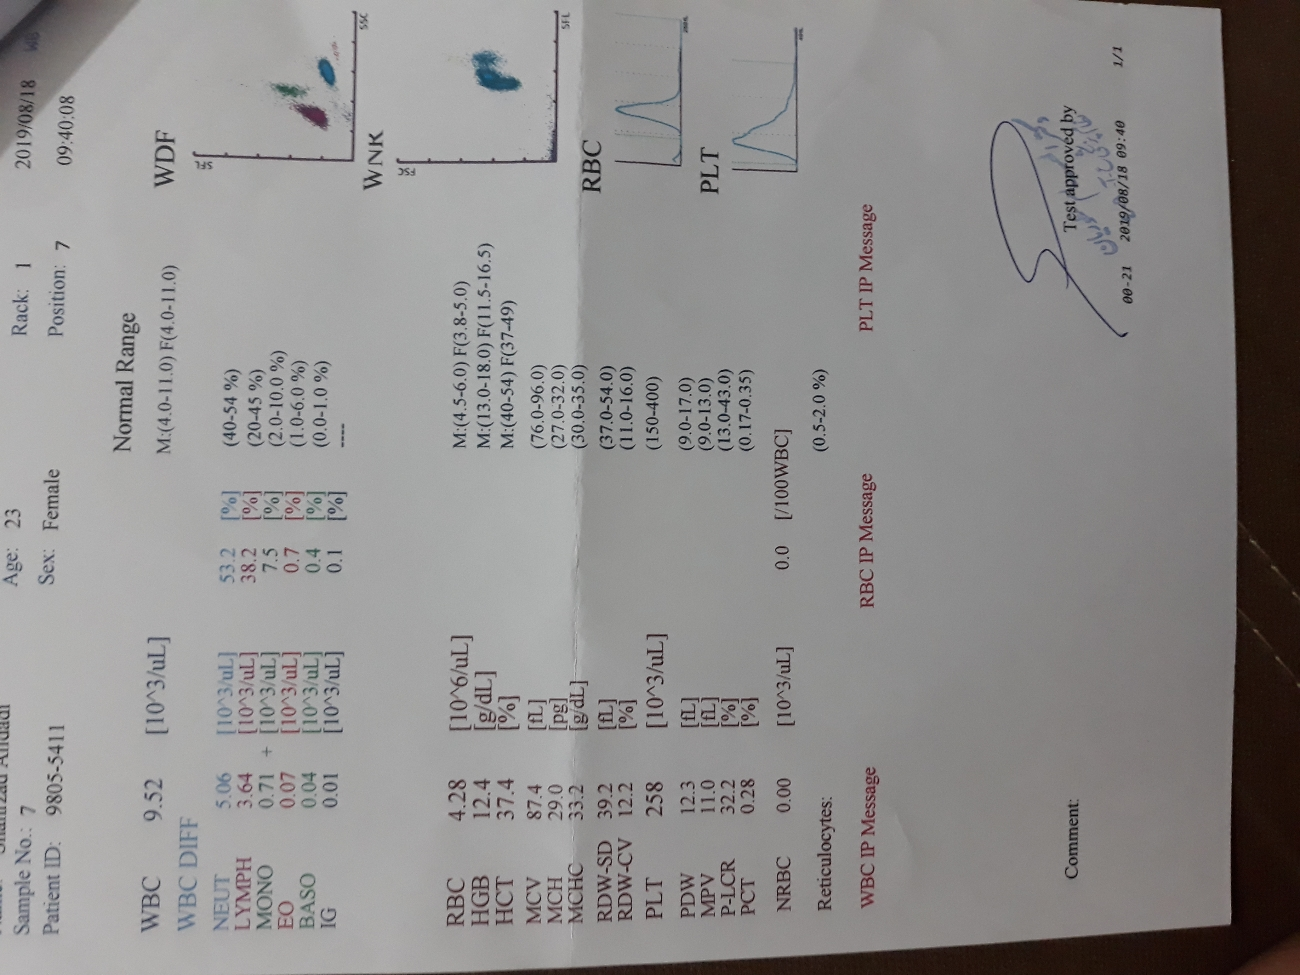 Sample No.: 7 Age: 23 Rack: 1 2019/08/18
Patient ID: 9805-5411 Sex: Female Position: 7 09:40:08
Normal Range
WBC 9.52 [10^3/uL] M:(4.0-11.0) F(4.0-11.0) WDF
WBC DIFF
SFL
NEUT 5.06 [10^3/uL] 53.2 [%] (40-54 %)
LYMPH 3.64 [10^3/uL] 38.2 [%] (20-45 %)
MONO 0.71 + [10^3/uL] 7.5 [%] (2.0-10.0 %)
EO 0.07 [10^3/uL] 0.7 [%] (1.0-6.0 %)
BASO 0.04 [10^3/uL] 0.4 [%] (0.0-1.0 %)
IG 0.01 [10^3/uL] 0.1 [%] ----
SSC
WNK
FSC
RBC 4.28 [10^6/uL] M:(4.5-6.0) F(3.8-5.0)
HGB 12.4 [g/dL] M:(13.0-18.0) F(11.5-16.5)
HCT 37.4 [%] M:(40-54) F(37-49)
MCV 87.4 [fL] (76.0-96.0)
MCH 29.0 [pg] (27.0-32.0)
MCHC 33.2 [g/dL] (30.0-35.0)
SFL
RBC
RDW-SD 39.2 [fL] (37.0-54.0)
RDW-CV 12.2 [%] (11.0-16.0)
PLT 258 [10^3/uL] (150-400)
PDW 12.3 [fL] (9.0-17.0)
MPV 11.0 [fL] (9.0-13.0)
P-LCR 32.2 [%] (13.0-43.0)
PCT 0.28 [%] (0.17-0.35)
PLT
NRBC 0.00 [10^3/uL] 0.0 [/100WBC]
Reticulocytes: (0.5-2.0 %)
WBC IP Message RBC IP Message PLT IP Message
Comment: Test approved by
00-21 2019/08/18 09:40 1/1